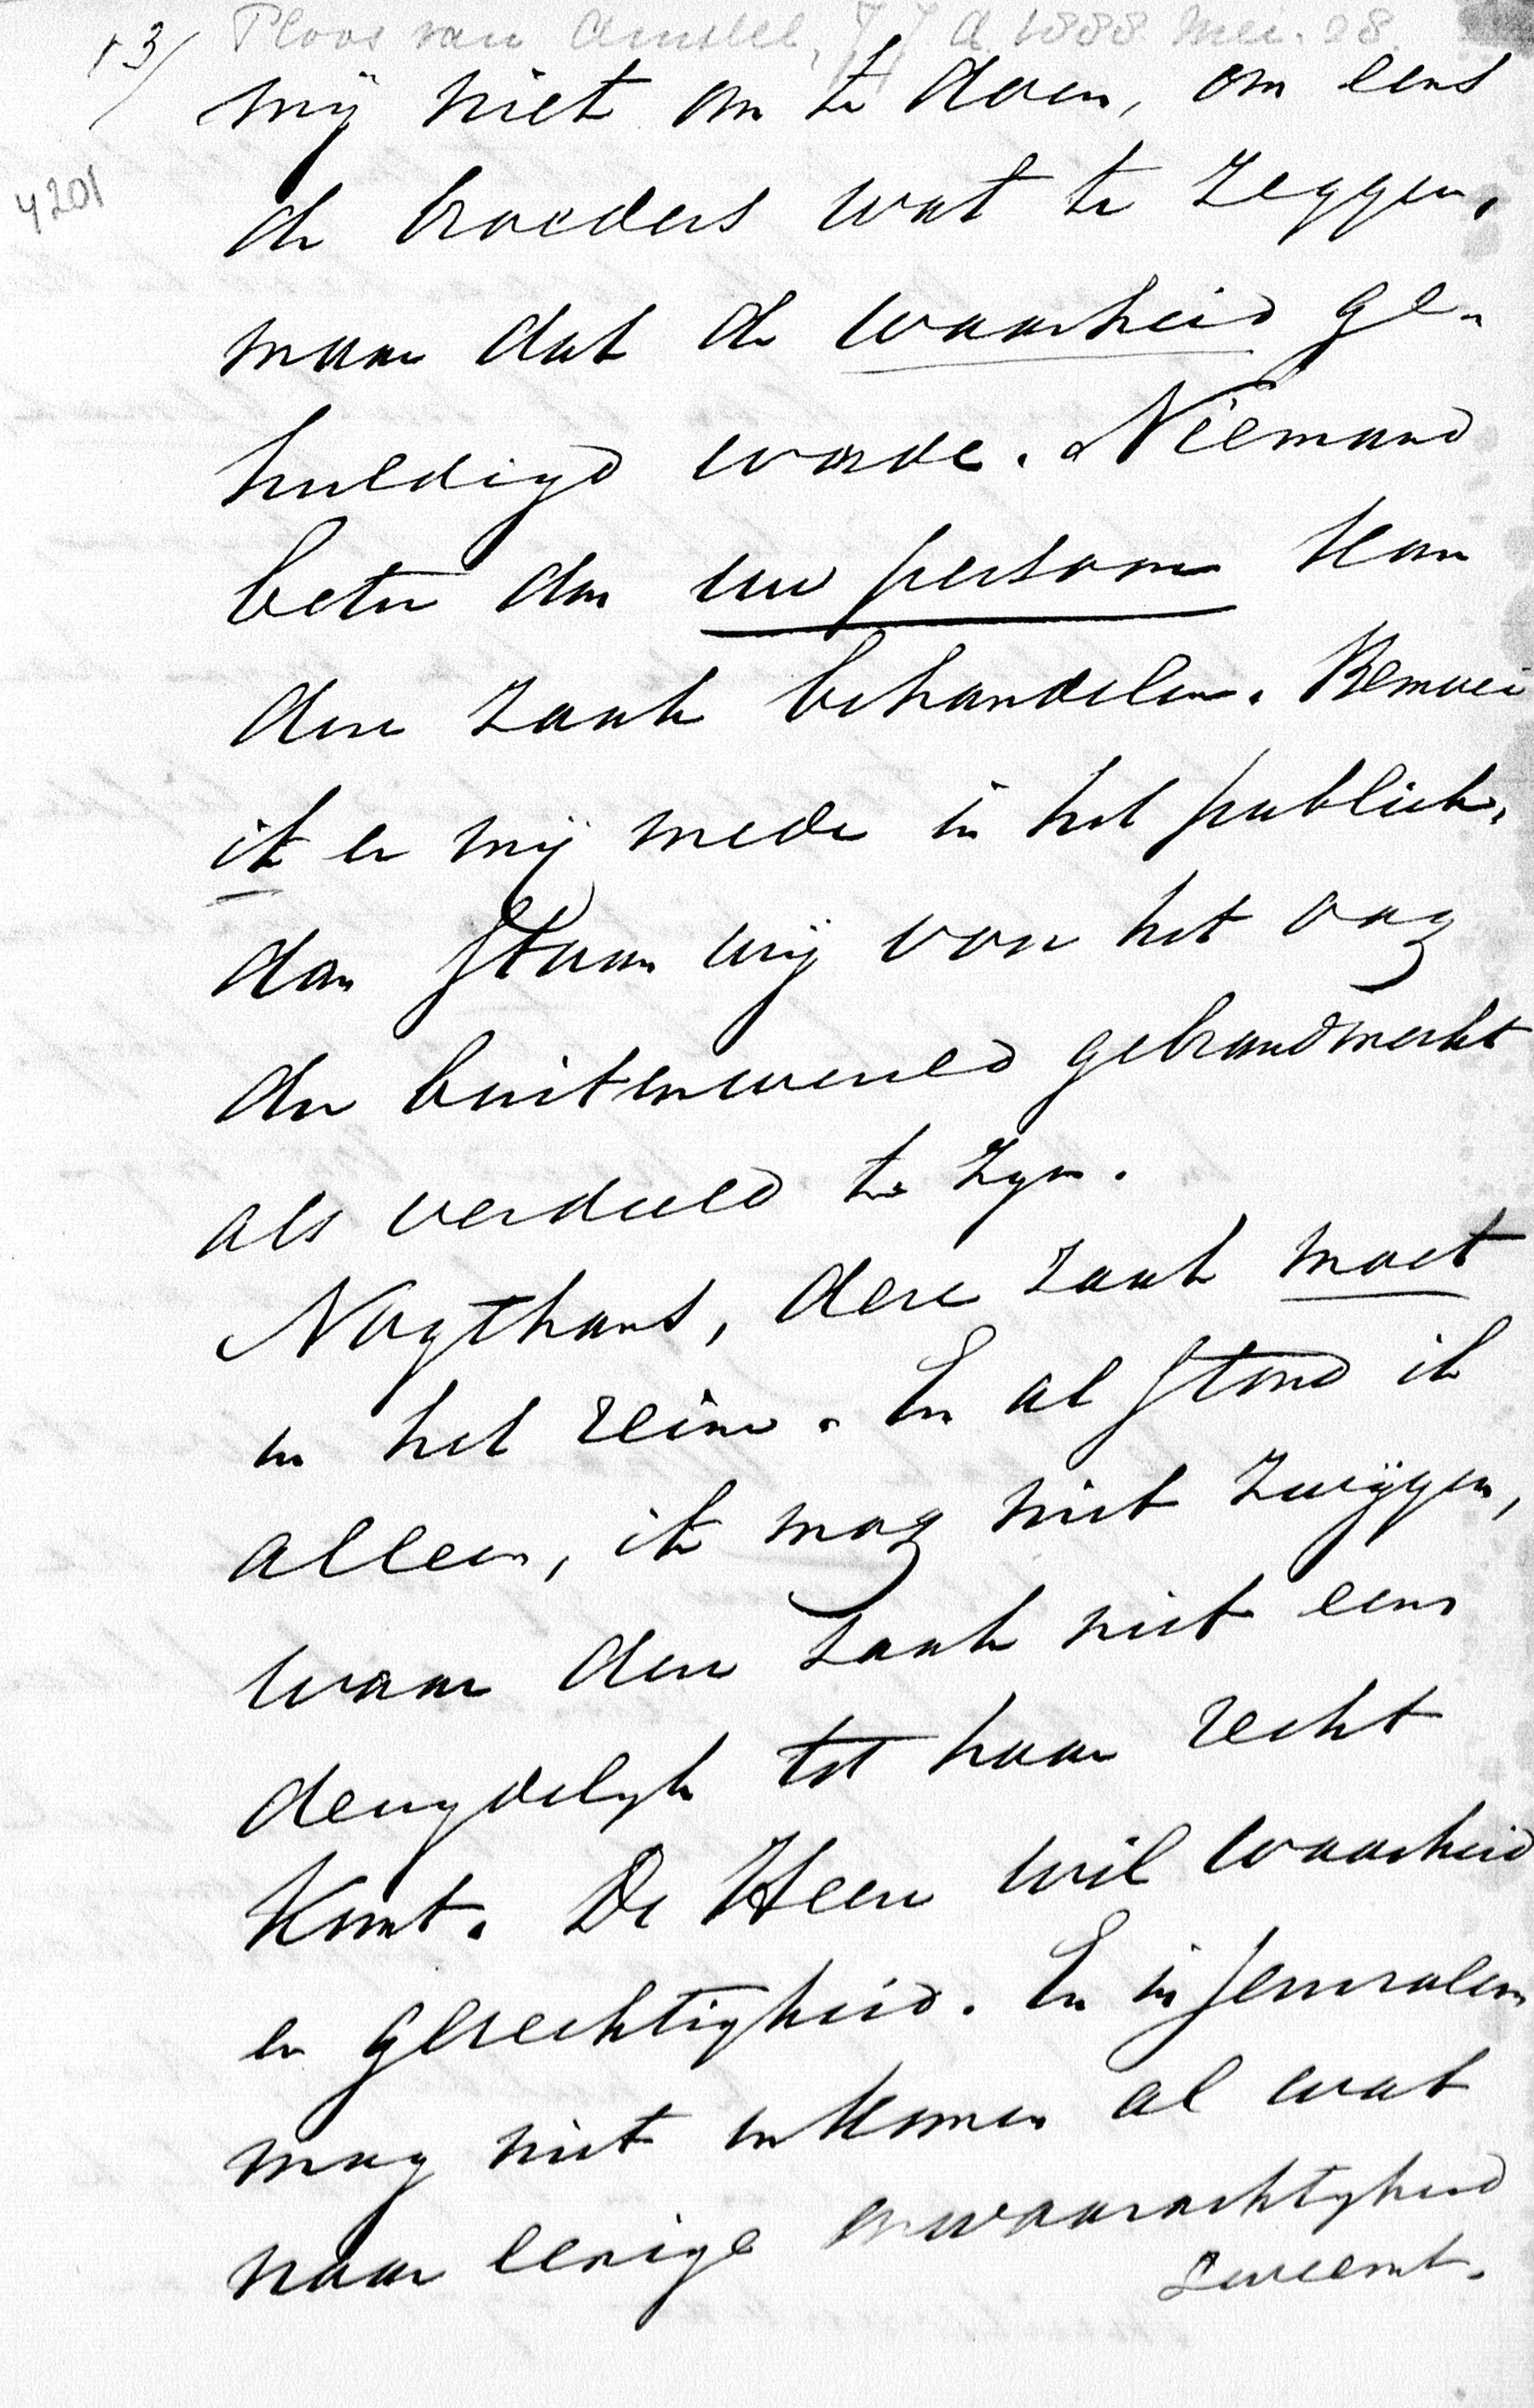 13/ Ploos van Amstel, J J A. 1888 Mei. 28.
mij niet om te doen, om eens
4201
de broeders wat te zeggen,
maar dat de waarheid ge-
huldigd worde. Niemand
beter dan uw persoon kan
deze zaak behandelen. Bemoei
ik er mij mede in het publiek,
dan staan wij voor het oog
der buitenwereld gebrandmerkt
als verdeeld te zijn.
Nogthans, deze zaak moet
in het reine. En al stond ik
alleen, ik mag niet zwijgen,
waar deze zaak niet eens
deugdelijk tot haar recht
komt. De Heere wil waarheid
en gerechtigheid. En in Jeruzalem
mag niet inkomen al wat
naar eenige onwaarachtigheid
zweemt.